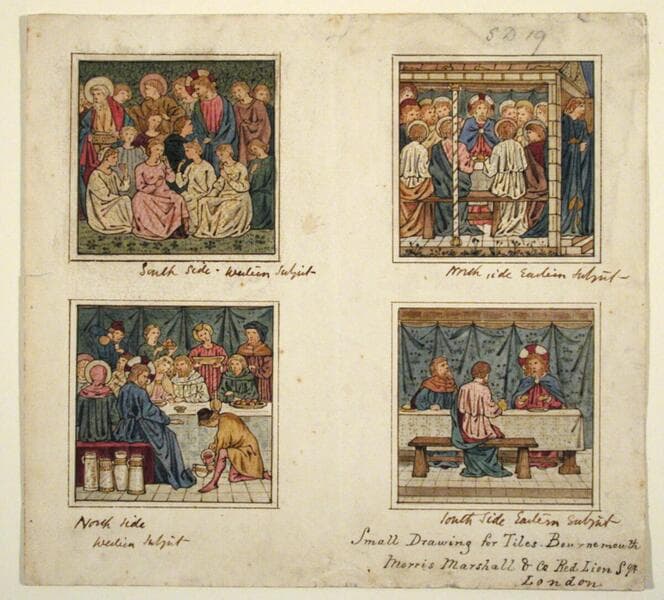 S D 19
South Side - Western Subject
North side Eastern Subject
North Side
Western Subject
South Side Eastern Subject
Small Drawing for Tiles. Bournemouth
Morris Marshall & Co Red Lion Sqr
London